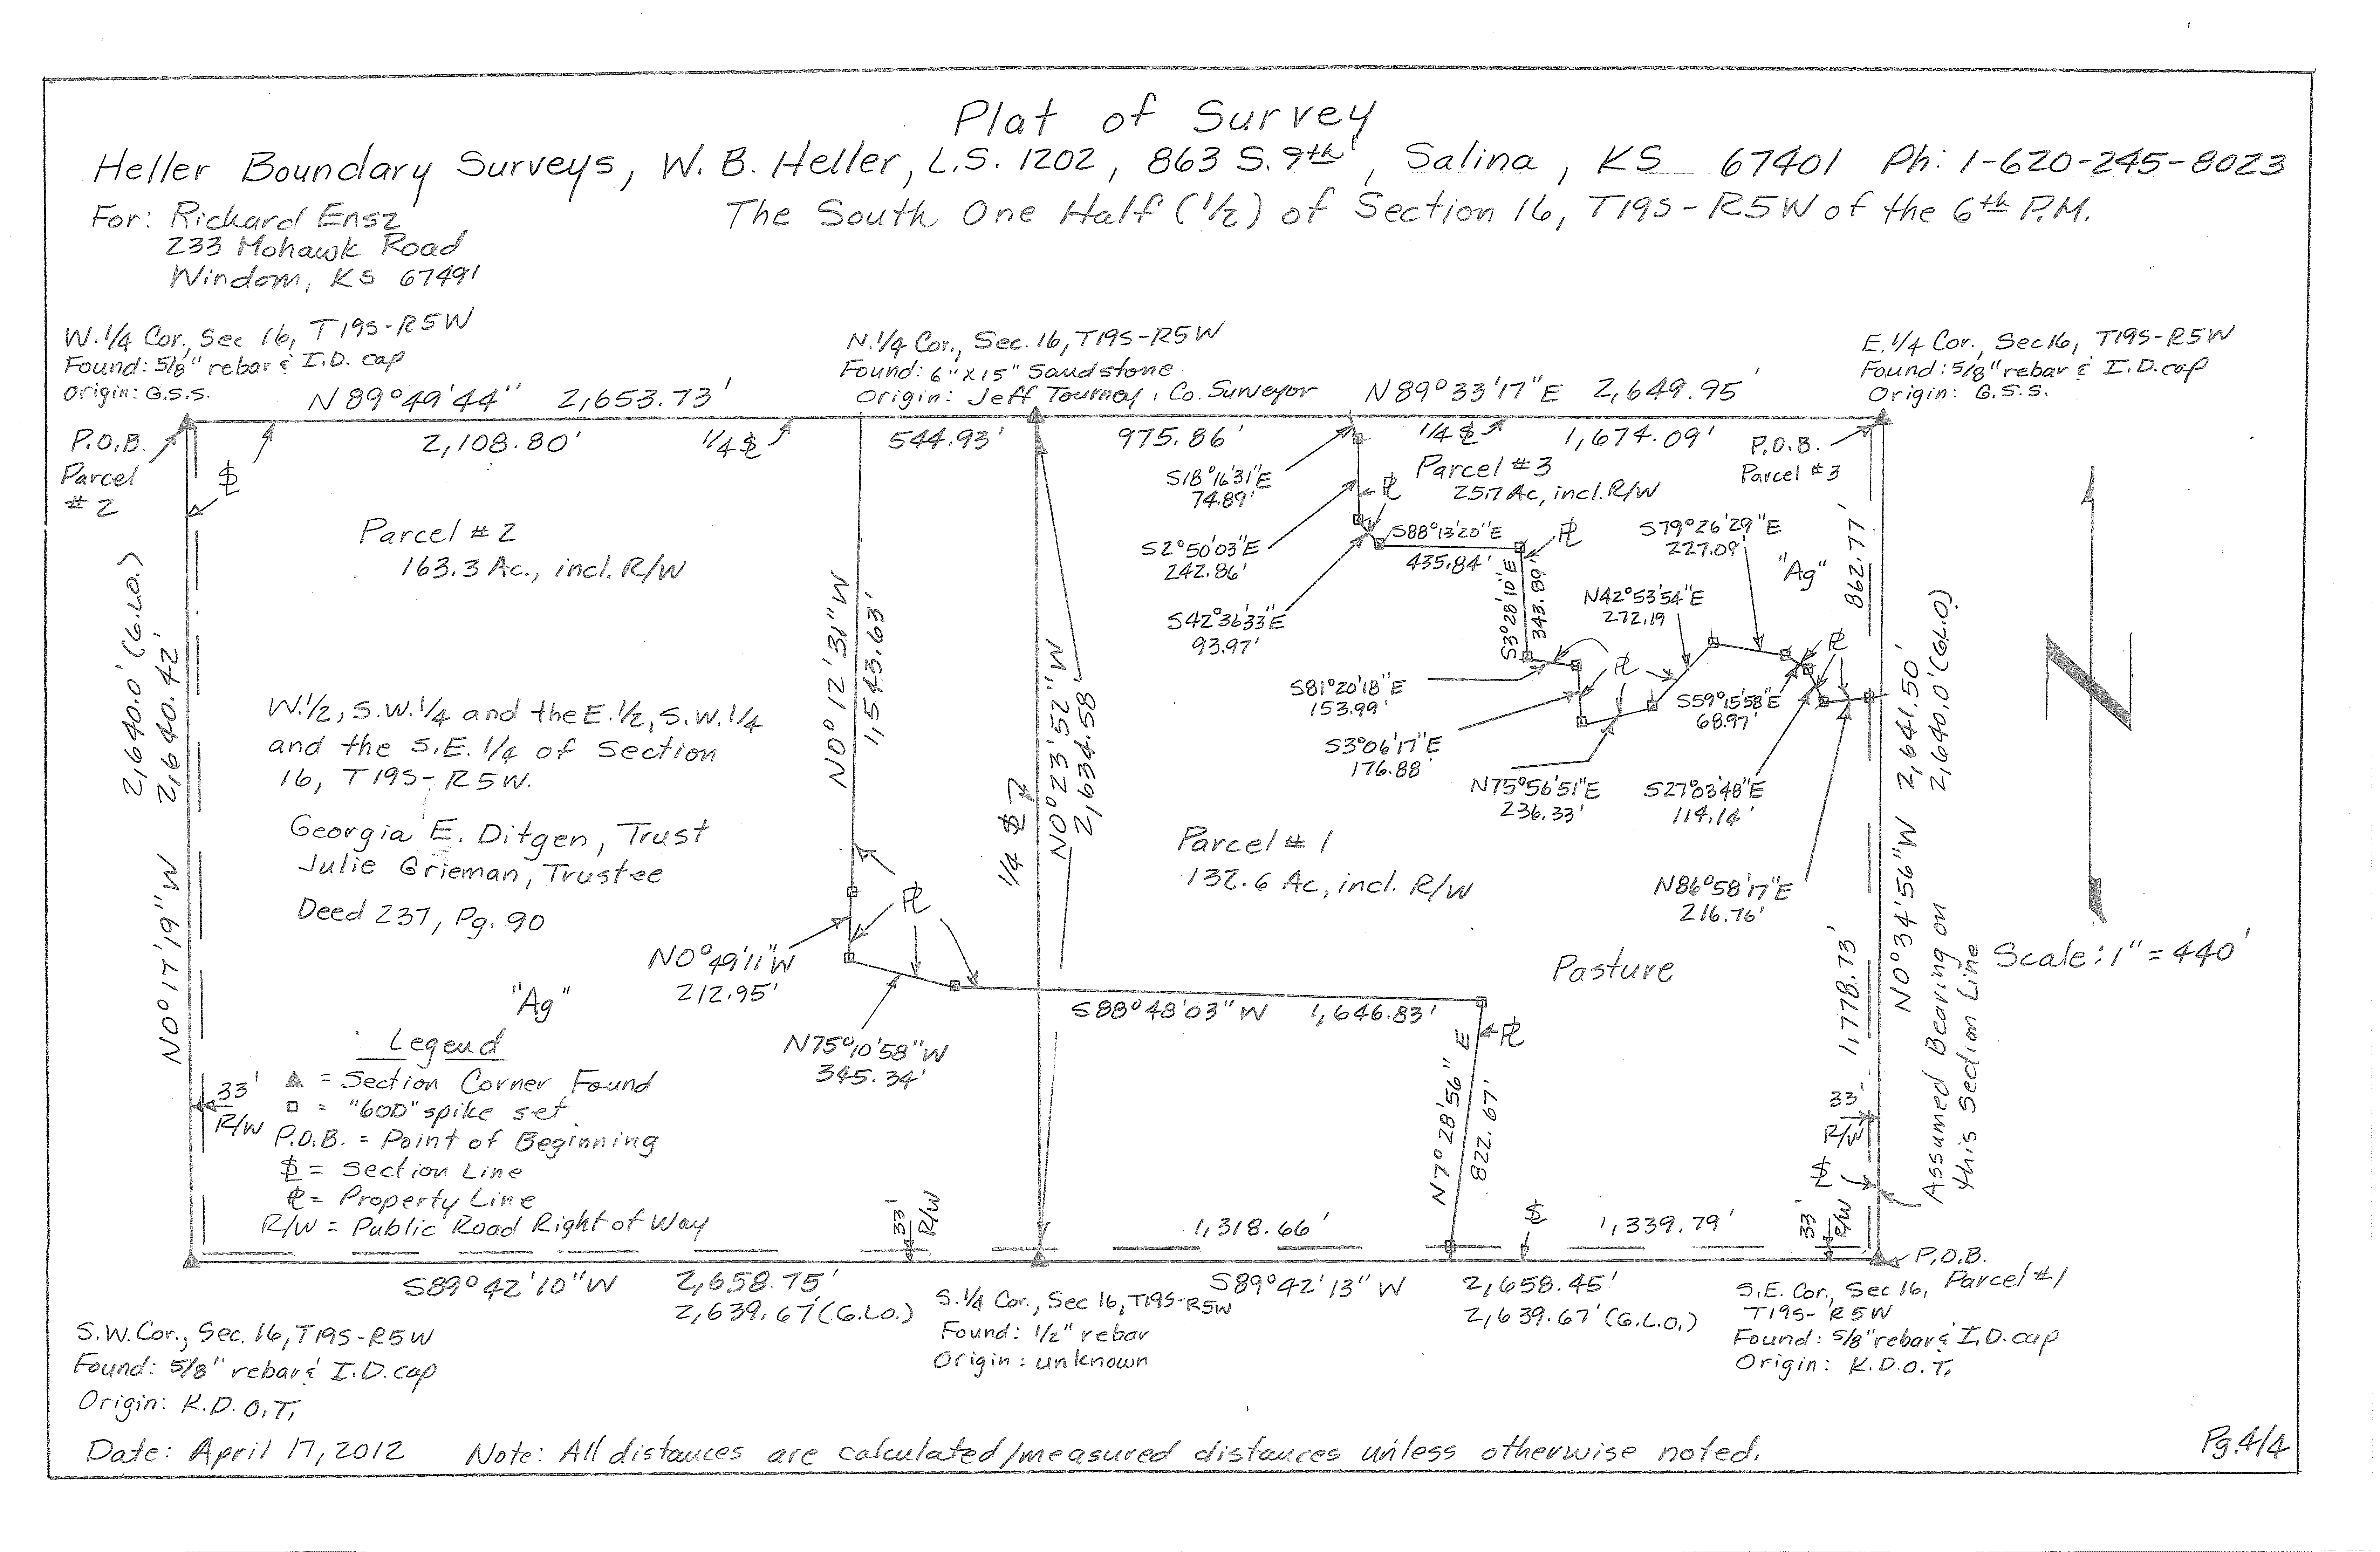 Plat of Survey
Heller Boundary Surveys, W. B. Heller, L.S. 1202, 863 S. 9th, Salina, KS 67401 Ph: 1-620-245-8023
For: Richard Ensz
The South One Half (1/2) of Section 16, T19S-R5W of the 6th P.M.
233 Mohawk Road
Windom, KS 67491
W.1/4 Cor., Sec 16, T19S-R5W
Found: 5/8" rebar & I.D. cap
Origin: G.S.S.
N.1/4 Cor., Sec. 16, T19S-R5W
Found: 6"x15" Sandstone
Origin: Jeff Tourney, Co. Surveyor
E.1/4 Cor., Sec 16, T19S-R5W
Found: 5/8" rebar & I.D. cap
Origin: G.S.S.
N89°49'44" 2,653.73'
N89°33'17"E 2,649.95'
P.O.B.
Parcel
#2
2,108.80'
1/4 SL
544.93'
975.86'
1/4 SL
1,674.09'
P.O.B.
Parcel #3
SL
S18°16'31"E
74.89'
Parcel #3
25.7 Ac, incl. R/W
PL
Parcel #2
163.3 Ac., incl. R/W
S2°50'03"E
242.86'
S88°13'20"E
435.84'
PL
S79°26'29"E
227.09'
"Ag"
862.77'
S42°36'33"E
93.97'
S3°28'10"E
343.89'
N42°53'54"E
272.19
PL
2,640.0' (G.L.O.)
2,640.42'
N0°17'19"W
N0°12'31"W
1,543.63'
N0°23'52"W
2,634.58'
1/4 SL
S81°20'18"E
153.99'
PL
S59°15'58"E
68.97'
S3°06'17"E
176.88'
N75°56'51"E
236.33'
S27°03'48"E
114.14'
N86°58'17"E
216.76'
N0°34'56"W 2,641.50'
2,640.0' (G.L.O)
W.1/2, S.W.1/4 and the E.1/2, S.W.1/4
and the S.E.1/4 of Section
16, T19S-R5W.
Georgia E. Ditgen, Trust
Julie Grieman, Trustee
Deed 237, Pg. 90
Parcel #1
132.6 Ac, incl. R/W
N
Scale: 1" = 440'
Pasture
PL
N0°49'11"W
212.95'
"Ag"
N75°10'58"W
345.34'
S88°48'03"W 1,646.83'
PL
N7°28'56"E
822.67'
1,778.73'
Assumed Bearing on
this Section Line
Legend
▲ = Section Corner Found
□ = "60D" spike set
P.O.B. = Point of Beginning
SL = Section Line
PL = Property Line
R/W = Public Road Right of Way
33'
R/W
33'
R/W
33'
R/W
SL
33'
R/W
1,318.66'
SL
1,339.79'
P.O.B.
Parcel #1
S89°42'10"W 2,658.75'
2,639.67' (G.L.O.)
S89°42'13"W 2,658.45'
2,639.67' (G.L.O.)
S.W. Cor., Sec. 16, T19S-R5W
Found: 5/8" rebar & I.D. cap
Origin: K.D.O.T.
S.1/4 Cor., Sec 16, T19S-R5W
Found: 1/2" rebar
Origin: unknown
S.E. Cor., Sec 16,
T19S-R5W
Found: 5/8" rebar & I.D. cap
Origin: K.D.O.T.
Date: April 17, 2012 Note: All distances are calculated/measured distances unless otherwise noted.
Pg. 4/4